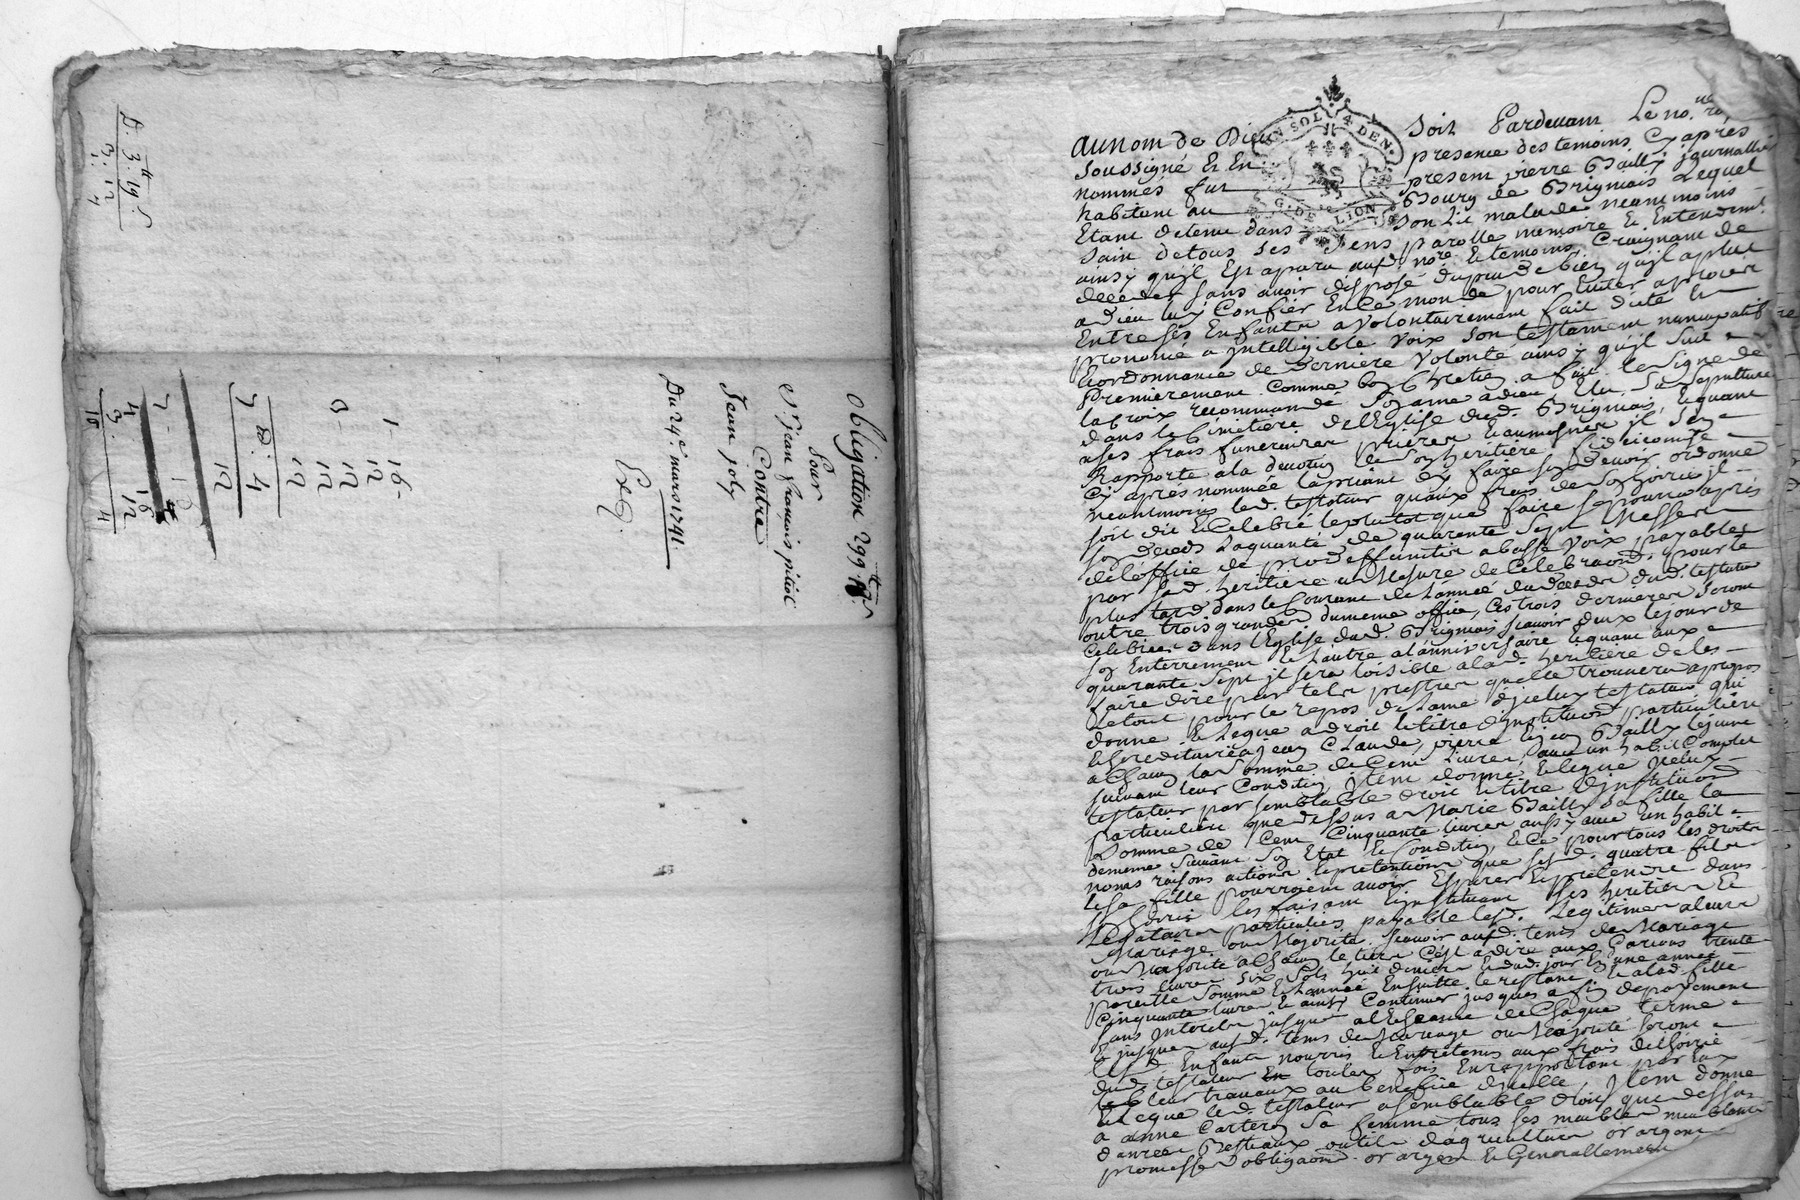 D. 3ᵗᵗ 19ˢ
3: 12
1: 4
obligation 299ᵗᵗ 8ˢ
Pour
Sʳ jean françois pitiot
Contre
Jean joly
Du 24ᵉ mars 1741.
Exp.
1 - 16 -
12
0 - 12
12
12
8: 4
7 12
7 -
4 16
3: 12
10 4
UN SOL 4 DEN.
G. DE LION
au nom de Dieu Soit Pardevant Le noʳᵉ
soussigné Et En presence des temoins Cy après
nommés fut present pierre Bailly journallier
habitant au Bourg de Brignais Lequel
Etant detenu dans son Lit malade neantmoins
sain de tous ses sens parolle memoire Et Entendemᵗ.
ainsy qu'jl Est aparu audᵗ. noʳᵉ Et temoins, Craignant de
deceder sans avoir disposé du peu de bien qu'jl a plut
a Dieu luy Confier En Ce monde pour Eviter a procès
Entre ses Enfants a volontairement fait dicté Et
prononcé a jntelligible voix son testament nuncupatif
Et ordonnance de derniere volonté ainsy qu'jl suit
Premierement Comme bon Chretien a fait le signe de
la Croix recommandé son ame a dieu, Elu sa sepulture
dans le Cimetière de l'Eglise dudᵗ. Brignais, Et quant
a ses frais funeraires prieres Et aumosnes jl s'en
Rapporte a la devotion de son heritière
Cy après nommée la priant d'y faire son devoir ordonne
neantmoins ledᵗ. testateur qu'aux frais de son hoirie jl
soit dit Et Celebré le plutot que faire se pourra après
son deceds la quantité de quarante sept Messes
de l'office de a basse voix payables
par sad. heritière a Mesure de Celebraõn. pour le
plus tard dans le Courant de L'année du decedz dudᵗ. testateur
outre trois grandes du meme office, Ces trois dernieres seront
Celebrées dans l'Eglise dudᵗ. Brignais sçavoir deux le jour de
son Enterrement Et L'autre a l'anniversaire Et quant aux
quarante sept jl sera loisible a lad. heritière de les
faire dire par tels prestres qu'elle trouvera a propos
Le tout pour le repos de L'ame d'jceluy testateur qui
donne Et Legue a droit Et titre d'jnstitution particulière
Et hereditaire a jean Claude, pierre Et jean Bailly Lejeune
a Chacun la somme de Cent Livres, avec un habit Complet
suivant leur Condition, jtem donne Et legue jceluy
testateur par semblable droit Et titre d'jnstitution
Particulière que dessus a Marie Bailly sa fille la
somme de Cent Cinquante livres aussy avec un habit
de meme suivant son Etat Et Condition, Et Ce pour tous les droits
noms raisons actions Et pretentions que sesd. quatre fils
Et sa fille pourroient avoir Esperer Et pretendre dans
son hoirie les faisant Et jnstituant ses heritiers Et
Legataires particuliers payable lesd. Legitimes a leurs
Mariage ou Majorité sçavoir aud. tems de Mariage
ou Majorité a Chacun le tiers C'est a dire aux Garcons trente
trois livres six sols huit deniers Et dud. jour En une année
pareille somme Et L'année Ensuitte le restant Et a lad. fille
Cinquante livres Et ainsy Continuer jusques a fin de payement
sans Interets jusque a l'Echeance de Chaque terme
Et jusques aud. tems de Mariage ou Majorité seront
Lesd. Enfants nourris Et Entretenus aux frais de l'hoirie
dud. testateur En toutes fois En rapportant par Eux
leur travaux au benefice d'jcelle, Jtem donne
Et Legue led. testateur a semblable droit que dessus
a anne Carteron sa femme tous ses meubles meublants
danrées Bestiaux outils d'agriculture or argent
promesses obligaõns. or argent Et Generallement